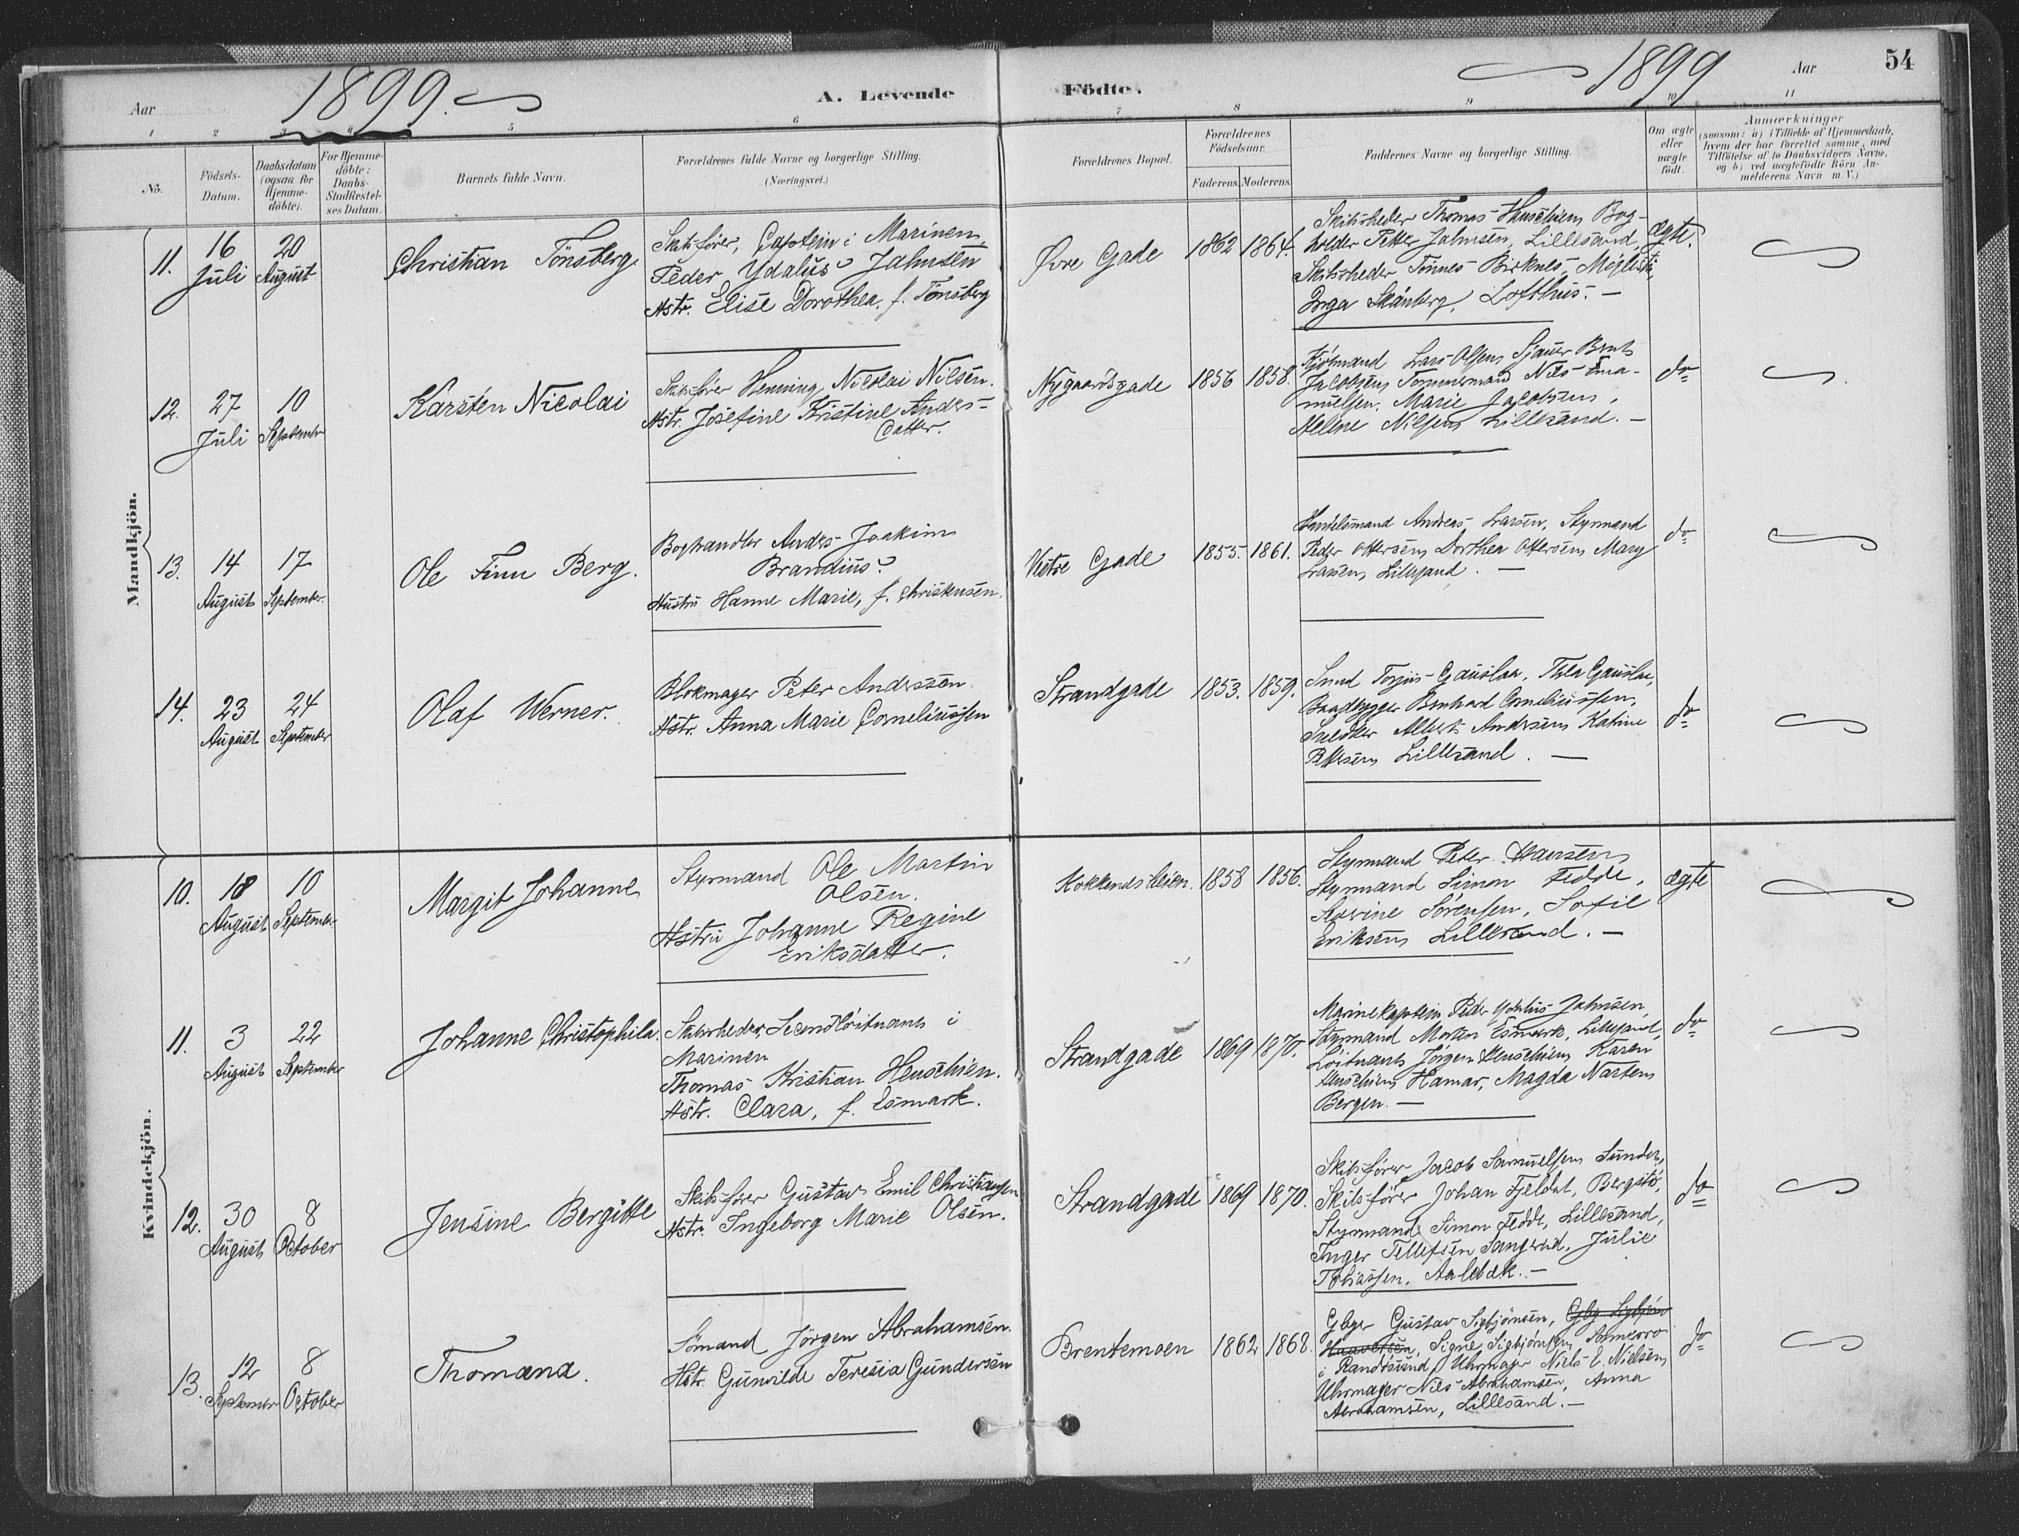 54
Aar 1899. A. Levende Födte. 1899 Aar
1 2 3 4 5 6 7 8 9 10 11
Nö.
Födsels-
Datum.
Daabsdatum
(ogsaa for
Hjemme-
döbte).
For Hjemme-
döbte:
Daabs-
Stadfæstel-
ses Datum.
Barnets fulde Navn.
Forældrenes fulde Navne og borgerlige Stilling.
(Næringsvei.)
Forældrenes Bopæl.
Forældrenes
Födselsaar.
Faderens. Moderens.
Faddernes Navne og borgerlige Stilling.
Om ægte
eller
uægte
födt.
Anmærkninger
(saasom: a) i Tilfælde af Hjemmedaab,
hvem der har forrettet samme, med
Tilföielse af to Daabsvidners Navne,
og b) ved uægtefödte Börn An-
melderens Navn m. V.)
Mandkjön.
11.
16
Juli
20
August
Christian Tönsberg.
Skibsfører, Captein i Marinen
Peder Ydalus Jahnsen
Hstr. Elise Dorothea, f. Tönsberg
Øvre Gade
1862
1864.
Skibsrheder Thomas Henschien, Bog-
holder Petter Jahnsen, Lillesand,
Skibsrheder Tönnes Birknes,
Inga Lofthus. —
ægte.
12.
27
Juli
10
September
Karsten Nicolai
Skibsfører Henning Nicolai Nilsen.
Hstr. Josefine Kristine Anders-
datter.
Nygaardsgade
1856
1858.
Lars Olsen,
Jacobsen, Tömmermand Nils Ema-
nuelsen, Marie Jacobsen,
Nilsen, Lillesand. —
do
13.
14
August
17
September.
Ole Finn Berg.
Boghandler Anders Joakim
Brandius
Hustru Hanne Marie, f. Christensen.
Vestre Gade
1855.
1861.
Handelsmand Andreas Larsen, Styrmand
Peder Ottersen, Dorthea Ottersen, Mary
Larsen, Lillesand. —
do
14.
23
August
24
September
Olaf Werner.
Blokmager Peter Anderssen
Hstr. Anna Marie Corneliussen
Strandgade
1853.
1859.
Smed Torjus Gauslaa, Thea Gauslaa,
Baadbygger Bernhard Corneliussen,
Snedker Albert Andersen, Katine
Pettersen, Lillesand. —
do
Kvindekjön.
10.
18
August
10
September
Margit Johanne
Styrmand Ole Martin
Olsen.
Hstru Johanne Regine
Eriksdatter.
Kokkendsheien.
1858
1856.
Styrmand Peter Hansen,
Styrmand Simon Fedde,
Sörensen, Sofie
Eriksen, Lillesand. —
ægte
11.
3
August
22
September
Johanne Christophila.
Skibsrheder, Secondlöitnant i
Marinen
Thomas Kristian Henschien.
Hstr. Clara, f. Esmark.
Strandgade
1869
1870.
Marinekaptein Peder Ydalus Jahnsen,
Styrmand Morten Esmark, Lillesand,
Löitnant Jörgen Henschien, Karen
Henschien, Hamar, Magda Narten
Bergen. —
do
12.
30
August
8
October
Jensine Bergitte
Skibsfører Gustav Emil Christiansen
Hstr. Ingeborg Marie Olsen.
Strandgade
1869
1870.
Skibsfører Jacob Samuelsen,
Skibsfører Johan Fjeldal, Bergstö,
Styrmand Simon Fedde, Lillesand,
Inger Tellefsen, Julie
Tobiassen, —
do
13.
12
September
8
October
Thomana.
Sömand Jörgen Abrahamsen.
Hstr. Gunvilde Teresia Gundersen
Brentemoen
1862
1868.
Gbgr Gustav Sigbjörnsen, Gbg. Sigbjörn
Haavorsen, Signe Sigbjörnsen
i Randøsund, Uhrmager Niels E. Nielsen,
Uhrmager Nils Abrahamsen, Anna
Abrahamsen, Lillesand. —
do